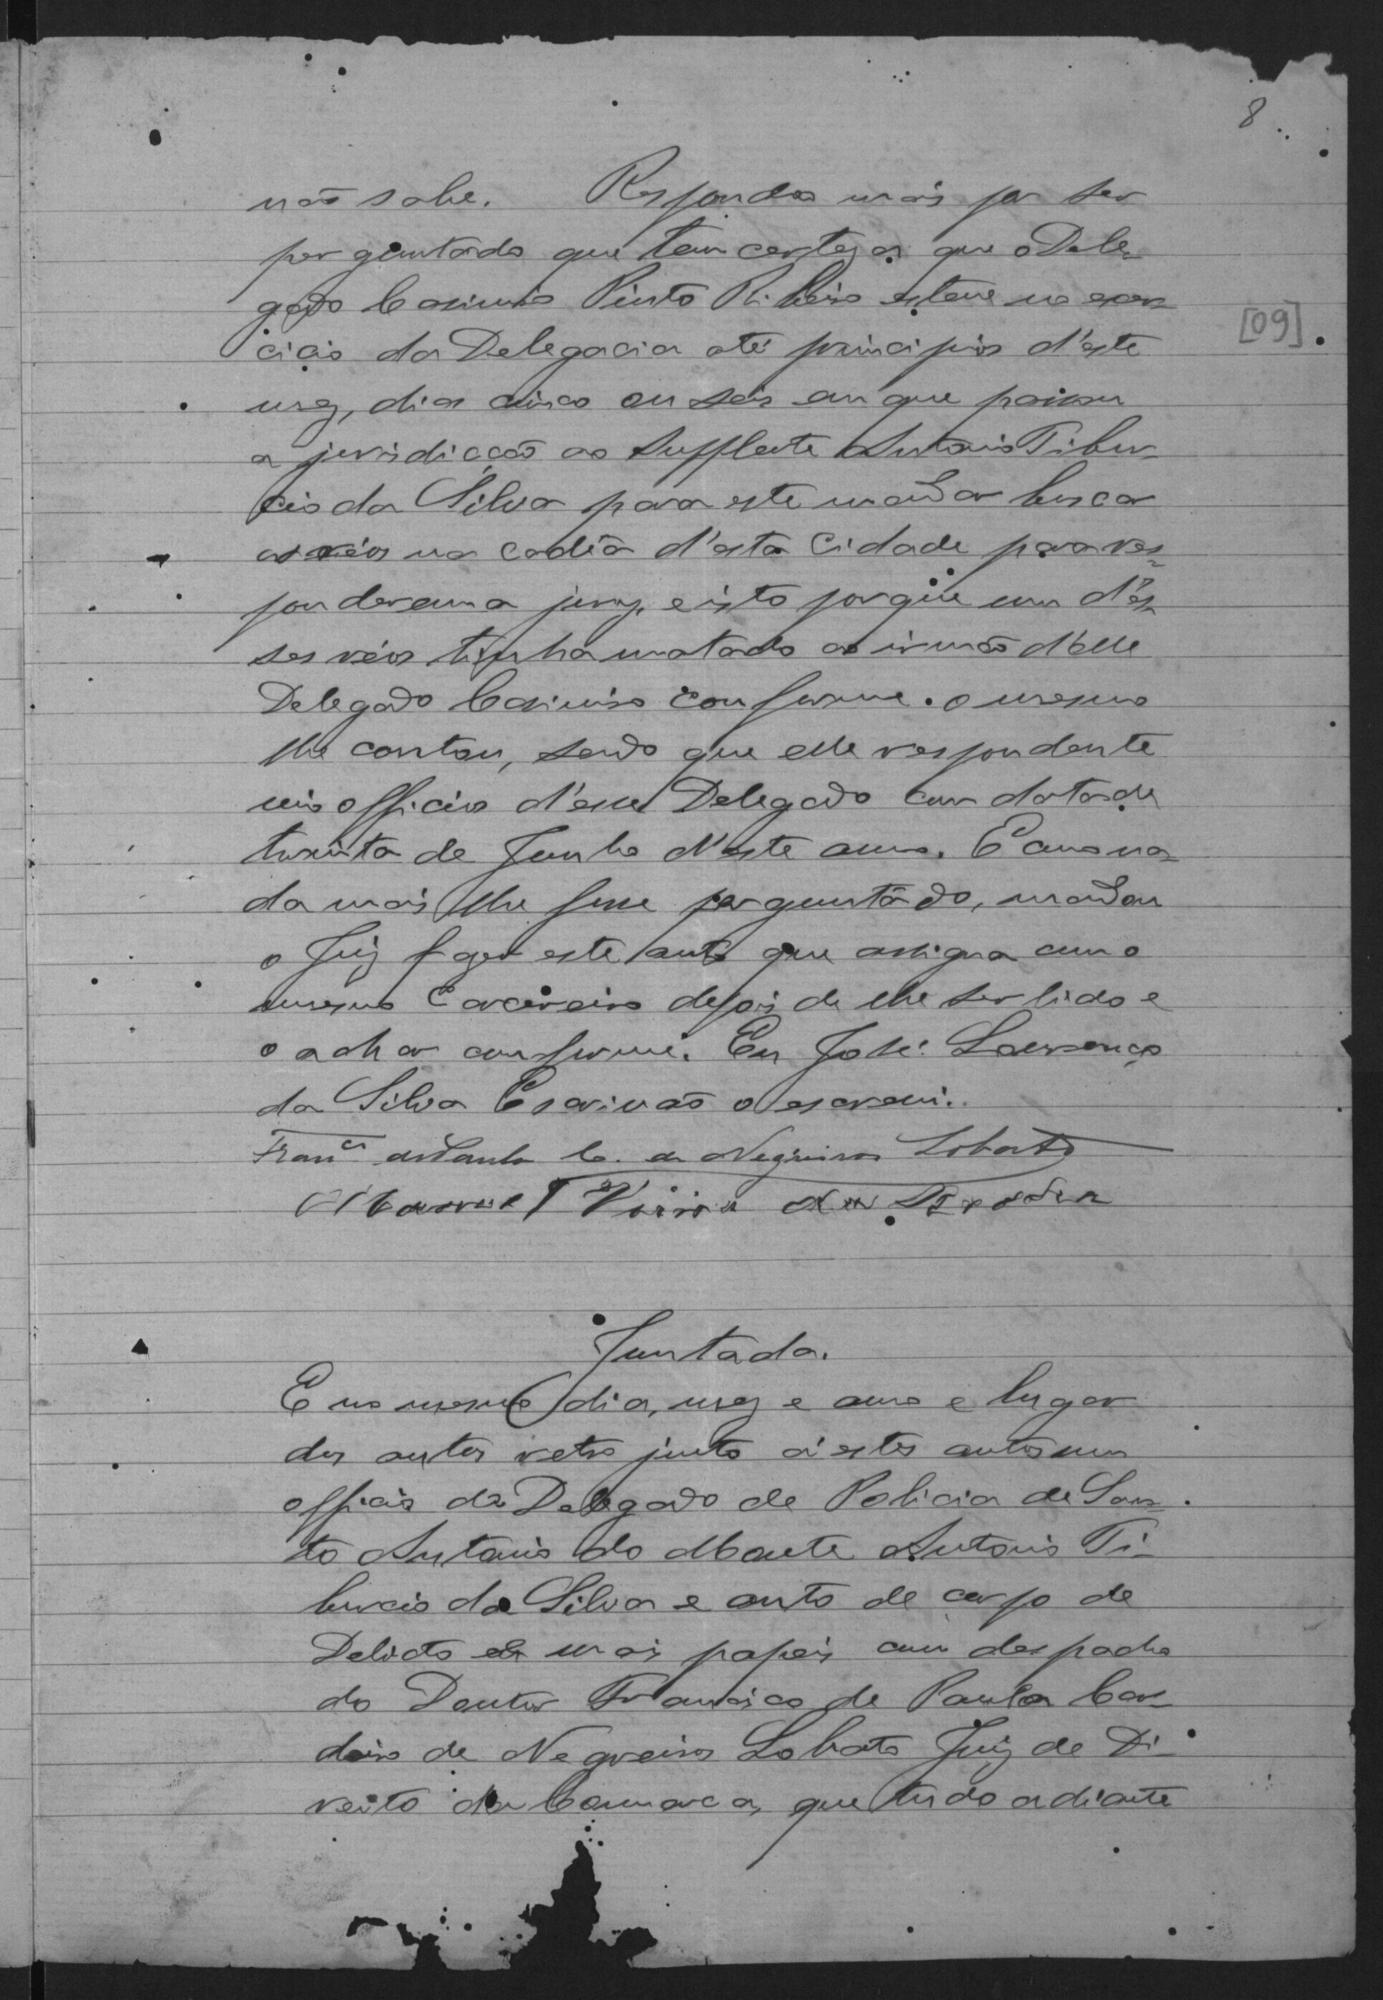 8
não sabe. Respondeo mais por ser
perguntado que tem certeza que o Dele-
gado Casimiro Pinto Ribeiro esteve no exer-
cicio da Delegacia até principios d'este
[09]
mez, dia cinco ou seis em que passou
a jurisdicção ao Supplente Antonio Tibur-
cio da Silva para este mandar buscar
os réos na cadêa d'esta Cidade para res-
ponderem a jury, e isto porque um d'es-
ses réos tinha matado ao irmão d'elle
Delegado Casimiro conforme o mesmo
lhe contou, sendo que elle respondente
vio officio d'esse Delegado com data de
trinta de Junho d'este anno. E como na-
da mais lhe fosse perguntado, mandou
o Juiz fazer este auto que assigna com o
mesmo Carcereiro depois de lhe ser lido e
o achar conforme. Eu José Lourenço
da Silva Escrivão o escrevi.
Franco de Paula C. de Negreiros Lobato
Manoel Vieira da
Juntada.
E no mesmo dia, mez e anno e lugar
dos autos retro junto a estes autos um
officio do Delegado de Policia de San-
to Antonio do Monte Antonio Ti-
burcio da Silva e auto de corpo de
Delicto e mais papeis com despacho
do Doutor Francisco de Paula Cor-
deiro de Negreiros Lobato Juiz de Di-
reito da Comarca, que tudo adiante